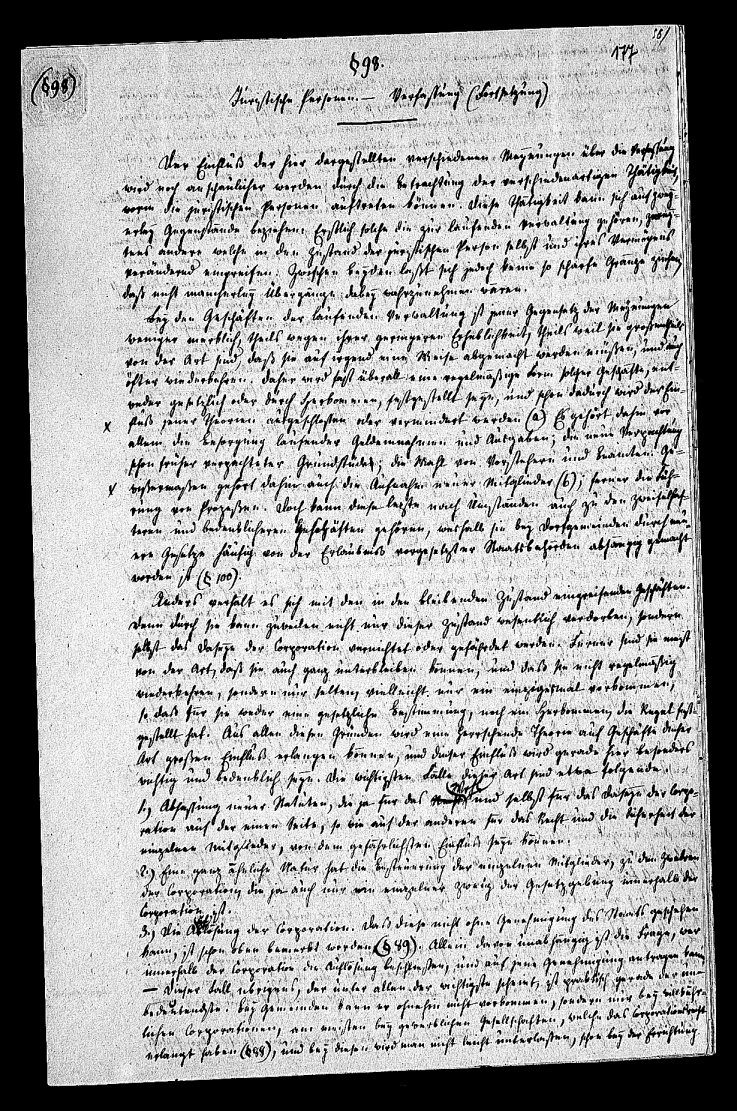 581
177
(§98)
§98.
Juristische Personen. — Verfassung (Fortsetzung)
Der Einfluß der hier dargestellten verschiedenen Meynungen über die Verfassung
wird noch anschaulicher werden durch die Betrachtung der verschiedenartigen Thätigkeit,
worin die juristischen Personen auftreten können. Diese Thätigkeit kann sich auf zwey-
erley Gegenstände beziehen: Erstlich solche die zur laufenden Verwaltung gehören, zwey-
tens andere welche in den Zustand der juristischen Person selbst und ihres Vermögens
verändernd eingreifen. Zwischen beyden läßt sich jedoch keine so scharfe Gränze ziehen,
daß nicht mancherley Übergänge dabey wahrzunehmen wären.
Bey den Geschäften der laufenden Verwaltung ist jener Gegensatz der Meynungen
weniger merklich, theils wegen ihrer geringeren Erheblichkeit, theils weil sie großentheils
von der Art sind, daß sie auf irgend eine Weise abgemacht werden müssen, und auch
öfter wiederkehren. Daher wird fast überall eine regelmäßige Form solcher Geschäfte, ent-
weder gesetzlich oder durch Herkommen, festgestellt seyn, und schon dadurch wird der Ein-
x fluß jener Theorien ausgeschlossen oder vermindert werden (a). Es gehört dahin vor
allem die Besorgung laufender Geldeinnahmen und Ausgaben; die neue Verpachtung
x schon früher verpachteter Grundstücke; die Wahl von Vorstehern und Beamten. Ge-
wissermaßen gehört dahin auch die Aufnahme neuer Mitglieder (b); ferner die Füh-
rung von Prozessen. Doch kann diese letzte nach Umständen auch zu den zweifelhaf-
teren und bedenklicheren Geschäften gehören, weshalb sie bey Dorfgemeinden durch neu-
ere Gesetze häufig von der Erlaubniß vorgesetzter Staatsbehörden abhängig gemacht
worden ist (§ 100).
Anders verhält es sich mit den in den bleibenden Zustand eingreifenden Geschäften.
Denn durch sie kann zuweilen nicht nur dieser Zustand wesentlich verdorben, sondern
selbst das Daseyn der Corporation vernichtet oder gefährdet werden. Ferner sind sie meist
von der Art, daß sie auch ganz unterbleiben können, und daß sie nicht regelmäßig
wiederkehren, sondern nur selten, vielleicht nur ein einzigesmal vorkommen,
so daß für sie weder eine gesetzliche Bestimmung, noch ein Herkommen, die Regel fest-
gestellt hat. Aus allen diesen Gründen wird eine herrschende Theorie auf Geschäfte dieser
Art großen Einfluß erlangen können, und dieser Einfluß wird gerade hier besonders
wichtig und bedenklich seyn. Die wichtigsten Fälle dieser Art sind etwa folgende:
1.) Abfassung neuer Statuten, die ja für das Wohl und selbst für das Daseyn der Corpo-
ration auf der einen Seite, so wie auf der anderen für das Recht und die Sicherheit der
einzelnen Mitglieder, von dem gefährlichsten Einfluß seyn können.
2.) Eine ganz ähnliche Natur hat die Besteuerung der einzelnen Mitglieder, zu den Zwecken
der Corporation, die ja auch nur ein einzelner Zweig der Gesetzgebung innerhalb der
Corporation ist.
3.) Die Auflösung der Corporation. Daß diese nicht ohne Genehmigung des Staats geschehen
kann, ist schon oben bemerkt worden (§ 89). Allein davon unabhängig ist die Frage, wer
innerhalb der Corporation die Auflösung beschließen, und auf jene Genehmigung antragen kann.
— Dieser Fall übrigens, der unter allen der wichtigste scheint, ist praktisch gerade der un-
bedeutendste. Bey Gemeinden kann er ohnehin nicht vorkommen, sondern nur bey willkühr-
lichen Corporationen, am meisten bey gewerblichen Gesellschaften, welche das Corporationsrecht
erlangt haben (§88), und bey diesen wird man nicht leicht unterlassen, schon bey der Errichtung